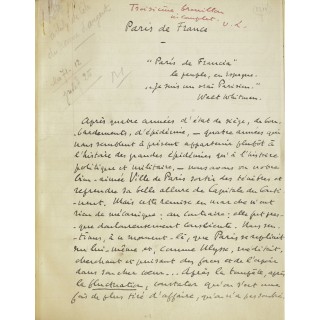 Troisième brouillon
incomplet V. L.
Paris de France
"Paris de Francia"
le peuple, en espagne.
"Je suis un vrai Parisien."
Walt Whitman.
Après quatre années d'état de siège, de bom-
bardements, d'épidémies, – quatre années qui
nous semblent à présent appartenir plutôt à
l'histoire des grandes épidémies qu'à l'histoire
politique et militaire, – nous avons vu notre
bien-aimée Ville de Paris sortir des ténèbres et
reprendre sa belle allure de Capitale du Conti-
nent. Mais cette remise en marche n'eut
rien de mécanique; au contraire: elle fut pres-
que douloureusement consciente. Nous sen-
tions, à ce moment-là, que Paris se repliait
sur lui-même et, comme Ulysse, méditait,
cherchant et puisant des forces et de l'espoir
dans son cher cœur... Après la tempête, après
la fluctuation, constater qu'on s'est une
fois de plus tiré d'affaire, qu'on n'a pas sombré,